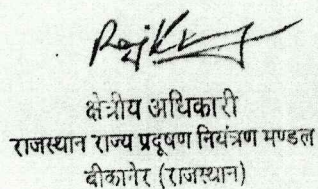 क्षेत्रीय अधिकारी
राजस्थान राज्य प्रदूषण नियंत्रण मण्डल
बीकानेर (राजस्थान)